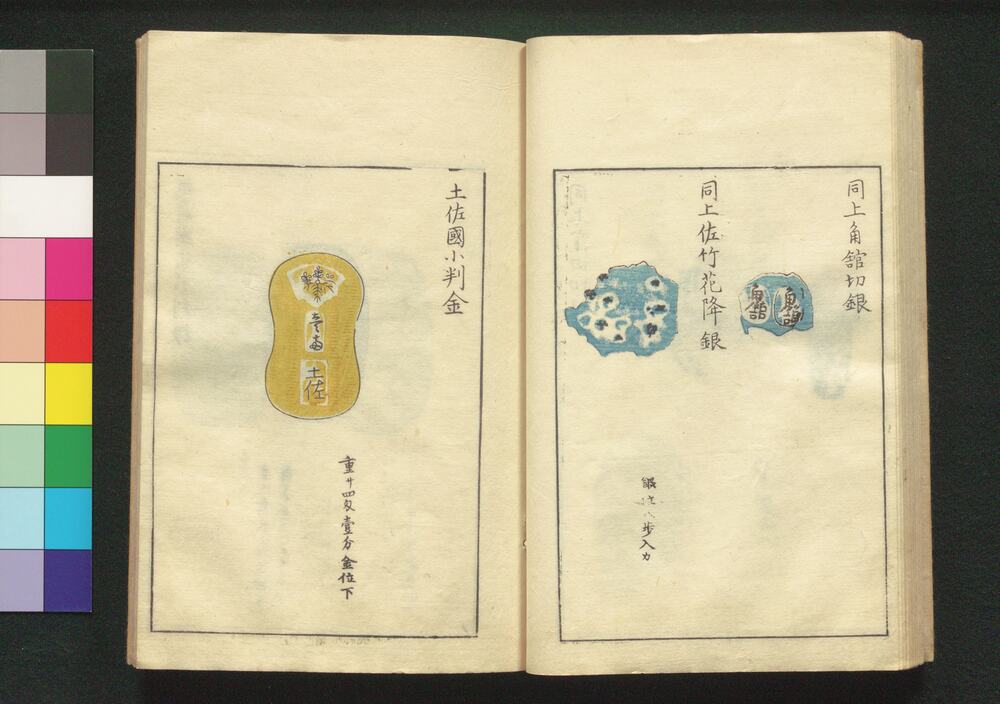 同上角舘切銀
角舘
角舘
同上佐竹花降銀
歩入カ
土佐國小判金
土佐
重廿四匁壹分金位下